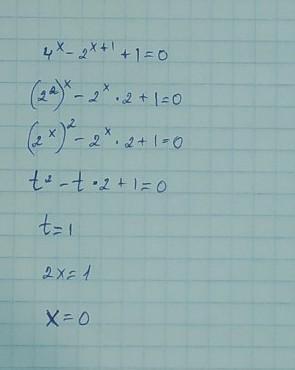 4^x - 2^{x+1} + 1 = 0
(2^2)^x - 2^x · 2 + 1 = 0
(2^x)^2 - 2^x · 2 + 1 = 0
t^2 - t · 2 + 1 = 0
t = 1
2x = 1
x = 0